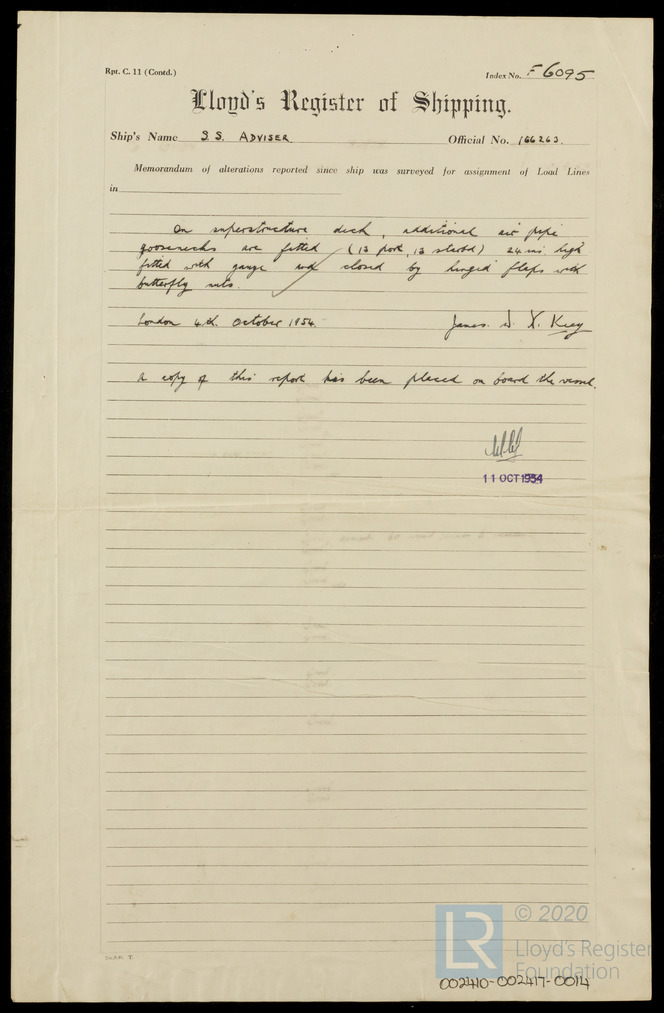 Rpt. C. 11 (Contd.)
Index No. F 6095
Lloyd's Register of Shipping.
Ship's Name S.S. ADVISER. Official No. 166263.
Memorandum of alterations reported since ship was surveyed for assignment of Load Lines
in
On superstructure deck, additional air pipe
goosenecks are fitted (13 port, 13 starbd) 24 ins high
fitted with gauze and closed by hinged flaps with
butterfly nuts.
London 4th. October 1954. James. D. X.
A copy of this report has been placed on board the vessel.
11 OCT 1954
© 2020
LR
Lloyd's Register
Foundation
002410-002417-0014